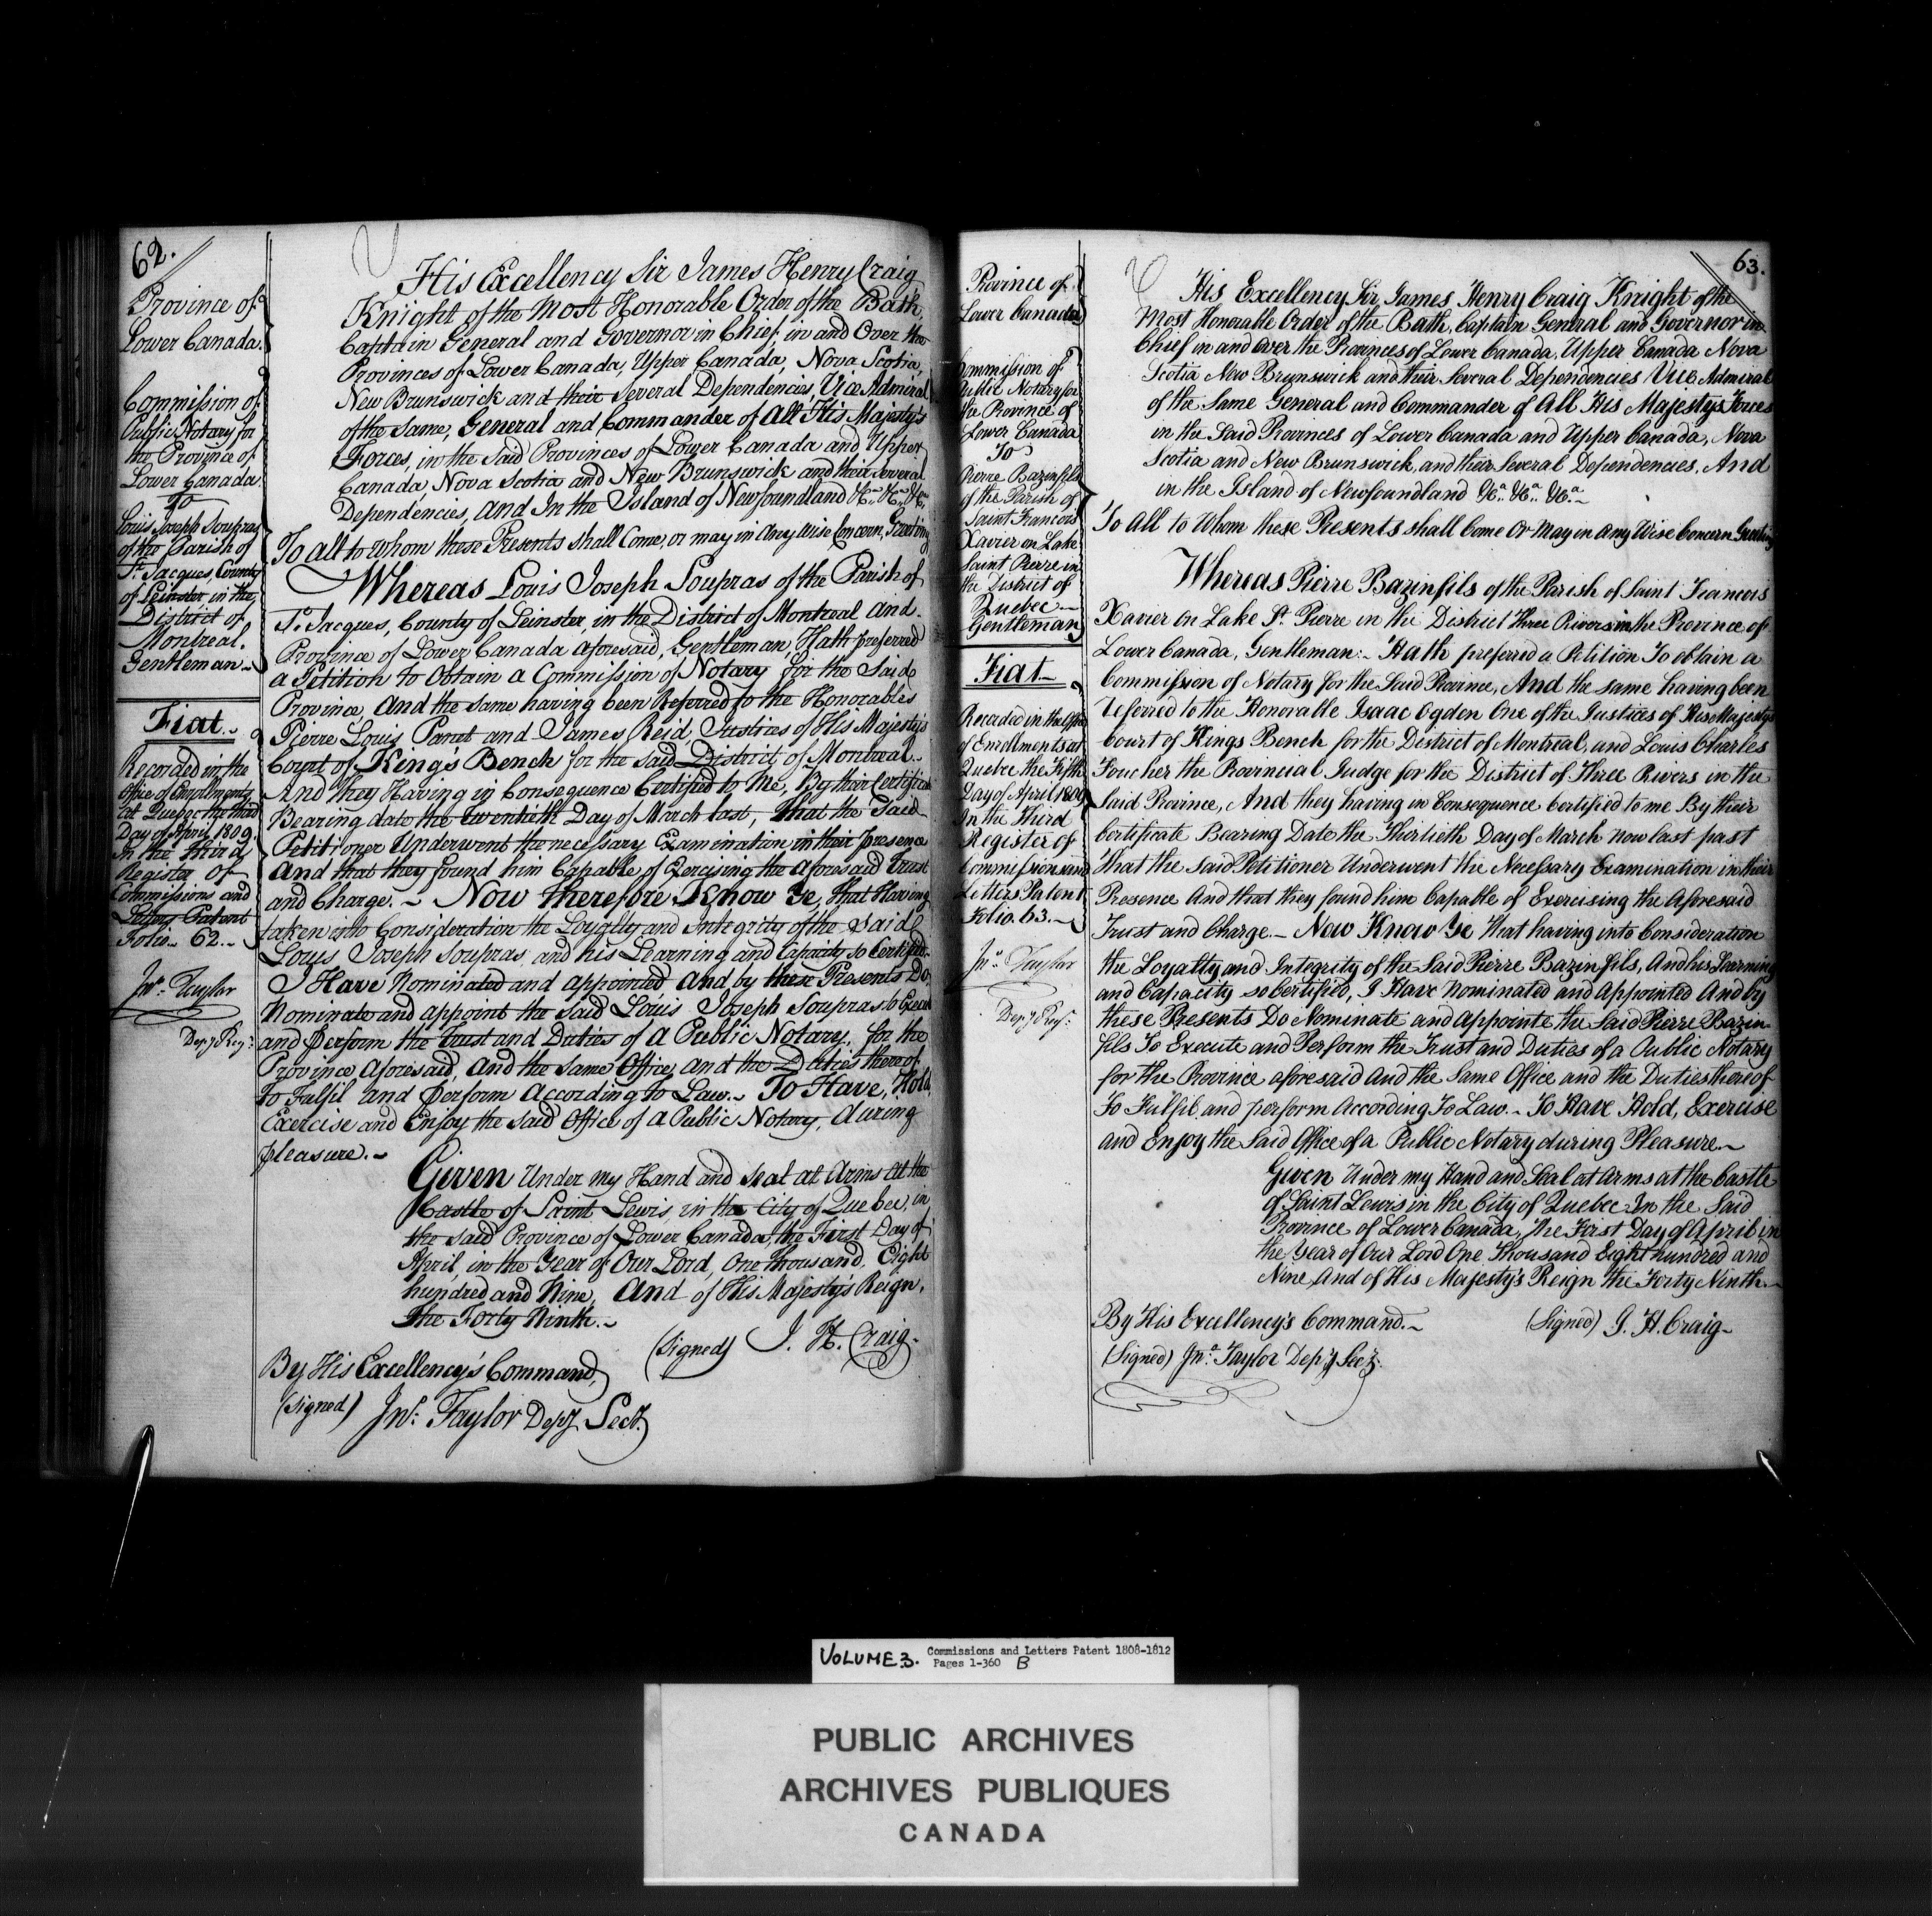 62.
Province of
Lower Canada.
Commission of
Public Notary for
the Province of
Lower Canada
To
Louis Joseph Soupras
of the Parish of
St. Jacques, County
of Leinster in the
District of
Montreal.
Gentleman
Fiat.
Recorded in the
Office of Enrollments
at Quebec the third
Day of April 1809.
In the third
Register of
Commissions and
Letters Patent
Folio 62.
Jno. Taylor
Depy Regr.
His Excellency Sir James Henry Craig
Knight of the Most Honorable Order of the Bath,
Captain General and Governor in Chief, in and Over the
Provinces of Lower Canada, Upper Canada, Nova Scotia,
New Brunswick and their Several Dependencies, Vice Admiral
of the Same, General and Commander of All His Majesty's
Forces, in the Said Provinces of Lower Canada and Upper
Canada, Nova Scotia and New Brunswick and their Several
Dependencies, And In the Island of Newfoundland &a. &a. &a.
To all to whom these Presents shall Come, or may in Any wise Concern, Greeting
Whereas Louis Joseph Soupras of the Parish of
St. Jacques, County of Leinster, in the District of Montreal and
Province of Lower Canada aforesaid, Gentleman, Hath preferred
a Petition to Obtain a Commission of Notary for the Said
Province, And the same having been Referred to the Honorables
Pierre Louis Panet and James Reid Justices of His Majesty's
Court of King's Bench for the Said District of Montreal
And they Having in Consequence Certified to Me, By their Certificate
Bearing date the twentieth Day of March last, That the Said
Petitioner Underwent the necessary Examination in their presence
And that they found him Capable of Exercising the aforesaid Trust
and Charge. ~ Now therefore Know Ye, that Having
taken into Consideration the Loyalty and Integrity of the Said
Louis Joseph Soupras, and his Learning and Capacity so Certified
I Have Nominated and appointed And by these Presents Do
Nominate and appoint the said Louis Joseph Soupras to Execute
and Perform the Trust and Duties of A Public Notary, for the
Province aforesaid, And the same Office, and the Duties thereof
To Fulfil and Perform According to Law. ~ To Have, Hold,
Exercise and Enjoy the said Office of A Public Notary, during
pleasure. ~
Given Under my Hand and Seal at Arms at the
Castle of Saint Lewis, in the City of Quebec, in
the said Province of Lower Canada, the First Day of
April, in the Year of Our Lord, One thousand, Eight
hundred and Nine, And of His Majesty's Reign,
The Forty Ninth. ~
(Signed) J. H. Craig
By His Excellency's Command,
(signed) Jno. Taylor Depy Secy.
63.
Province of
Lower Canada
Commission of
Public Notary for
the Province of
Lower Canada
To
Pierre Bazin fils
of the Parish of
Saint Francois
Xavier on Lake
Saint Pierre in
the District of
Quebec
Gentleman
Fiat
Recorded in the Office
of Enrollments at
Quebec the Fifth
Day of April 1809
In the Third
Register of
Commissions and
Letters Patent
Folio. 63.
Jno. Taylor
Depy Regr.
His Excellency Sir James Henry Craig Knight of the
Most Honorable Order of the Bath, Captain General and Governor in
Chief in and over the Provinces of Lower Canada, Upper Canada Nova
Scotia New Brunswick and their Several Dependencies Vice Admiral
of the Same General and Commander of All His Majesty's Forces
in the Said Provinces of Lower Canada and Upper Canada, Nova
Scotia and New Brunswick, and their Several Dependencies. And
in the Island of Newfoundland &a. &a. &a. ~
To All to Whom these Presents shall Come Or May in Any Wise Concern Greeting
Whereas Pierre Bazin fils of the Parish of Saint Francois
Xavier on Lake St. Pierre in the District Three Rivers in the Province of
Lower Canada, Gentleman: ~ Hath preferred a Petition To obtain a
Commission of Notary for the Said Province, And the same having been
referred to the Honorable Isaac Ogden One of the Justices of His Majesty's
Court of Kings Bench for the District of Montreal, and Louis Charles
Foucher the Provincial Judge for the District of Three Rivers in the
Said Province, And they having in Consequence Certified to me By their
Certificate Bearing Date the Thirtieth Day of March now last past
That the Said Petitioner Underwent the Necessary Examination in their
Presence And that they found him Capable of Exercising the Aforesaid
Trust and Charge. ~ Now Know Ye That having into Consideration
the Loyalty and Integrity of the Said Pierre Bazin fils, And his Learning
and Capacity so Certified, I Have Nominated and Appointed And by
these Presents Do Nominate and Appointe the Said Pierre Bazin
fils To Execute and Perform the Trust and Duties of a Public Notary
for the Province aforesaid And the Same Office and the Duties thereof
To Fulfil and perform According To Law. ~ To Have Hold, Exercise
and Enjoy the Said Office of a Public Notary during Pleasure. ~
Given Under my Hand and Seal at Arms at the Castle
of Saint Lewis in the City of Quebec In the Said
Province of Lower Canada, The First Day of April in
the Year of Our Lord One Thousand Eight hundred and
Nine And of His Majesty's Reign the Forty Ninth. ~
By His Excellency's Command. ~ (Signed) J. H. Craig
(Signed) Jno. Taylor Depy Secy.
VOLUME 3. Commissions and Letters Patent 1808-1812
Pages 1-360 B
PUBLIC ARCHIVES
ARCHIVES PUBLIQUES
CANADA